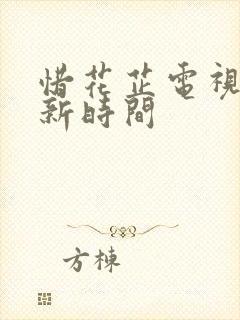 惜花芷電視
新時間
方棟